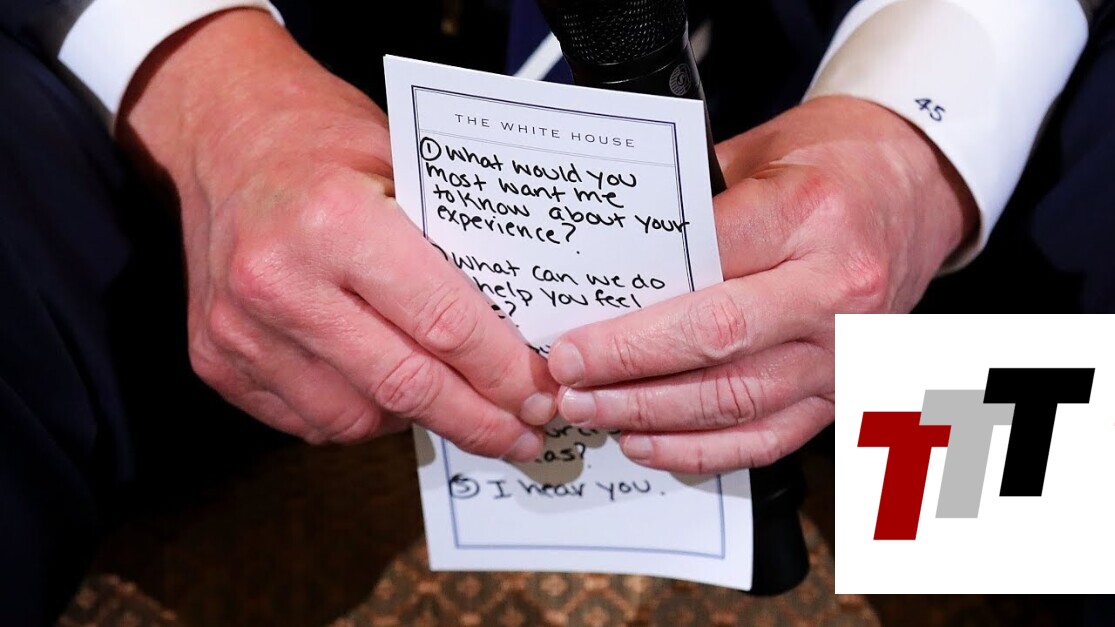 THE WHITE HOUSE
① What would you
most want me
to know about your
experience?
What can we do
help you feel
?
as?
⑤ I hear you.
45
TTT